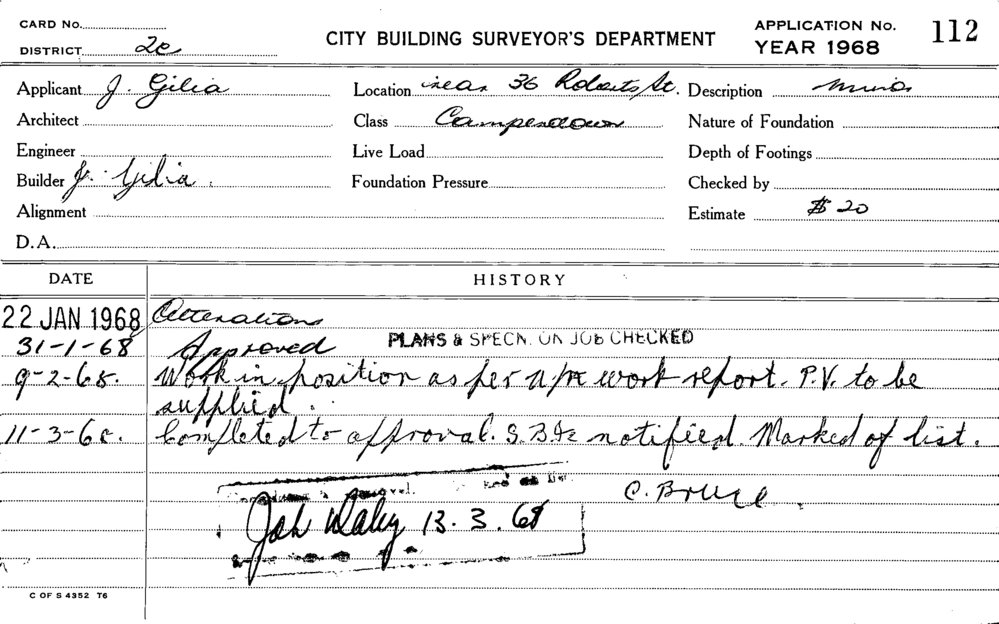 CARD No.
DISTRICT 2c
CITY BUILDING SURVEYOR'S DEPARTMENT
APPLICATION No. 112
YEAR 1968
Applicant J. Gilia
Location rear 36 Roberts St.
Description minor
Architect
Class Camperdown
Nature of Foundation
Engineer
Live Load
Depth of Footings
Builder J. Gilia.
Foundation Pressure
Checked by
Alignment
Estimate $20
D.A.
DATE HISTORY
22 JAN 1968 Alterations
31-1-68 Approved PLANS & SPECN. ON JOB CHECKED
9-2-68. Work in position as per work report. P.V. to be
supplied.
11-3-68. Completed to approval. notified. Marked of list.
C. Bruce
13.3.68
C OF S 4352 T6